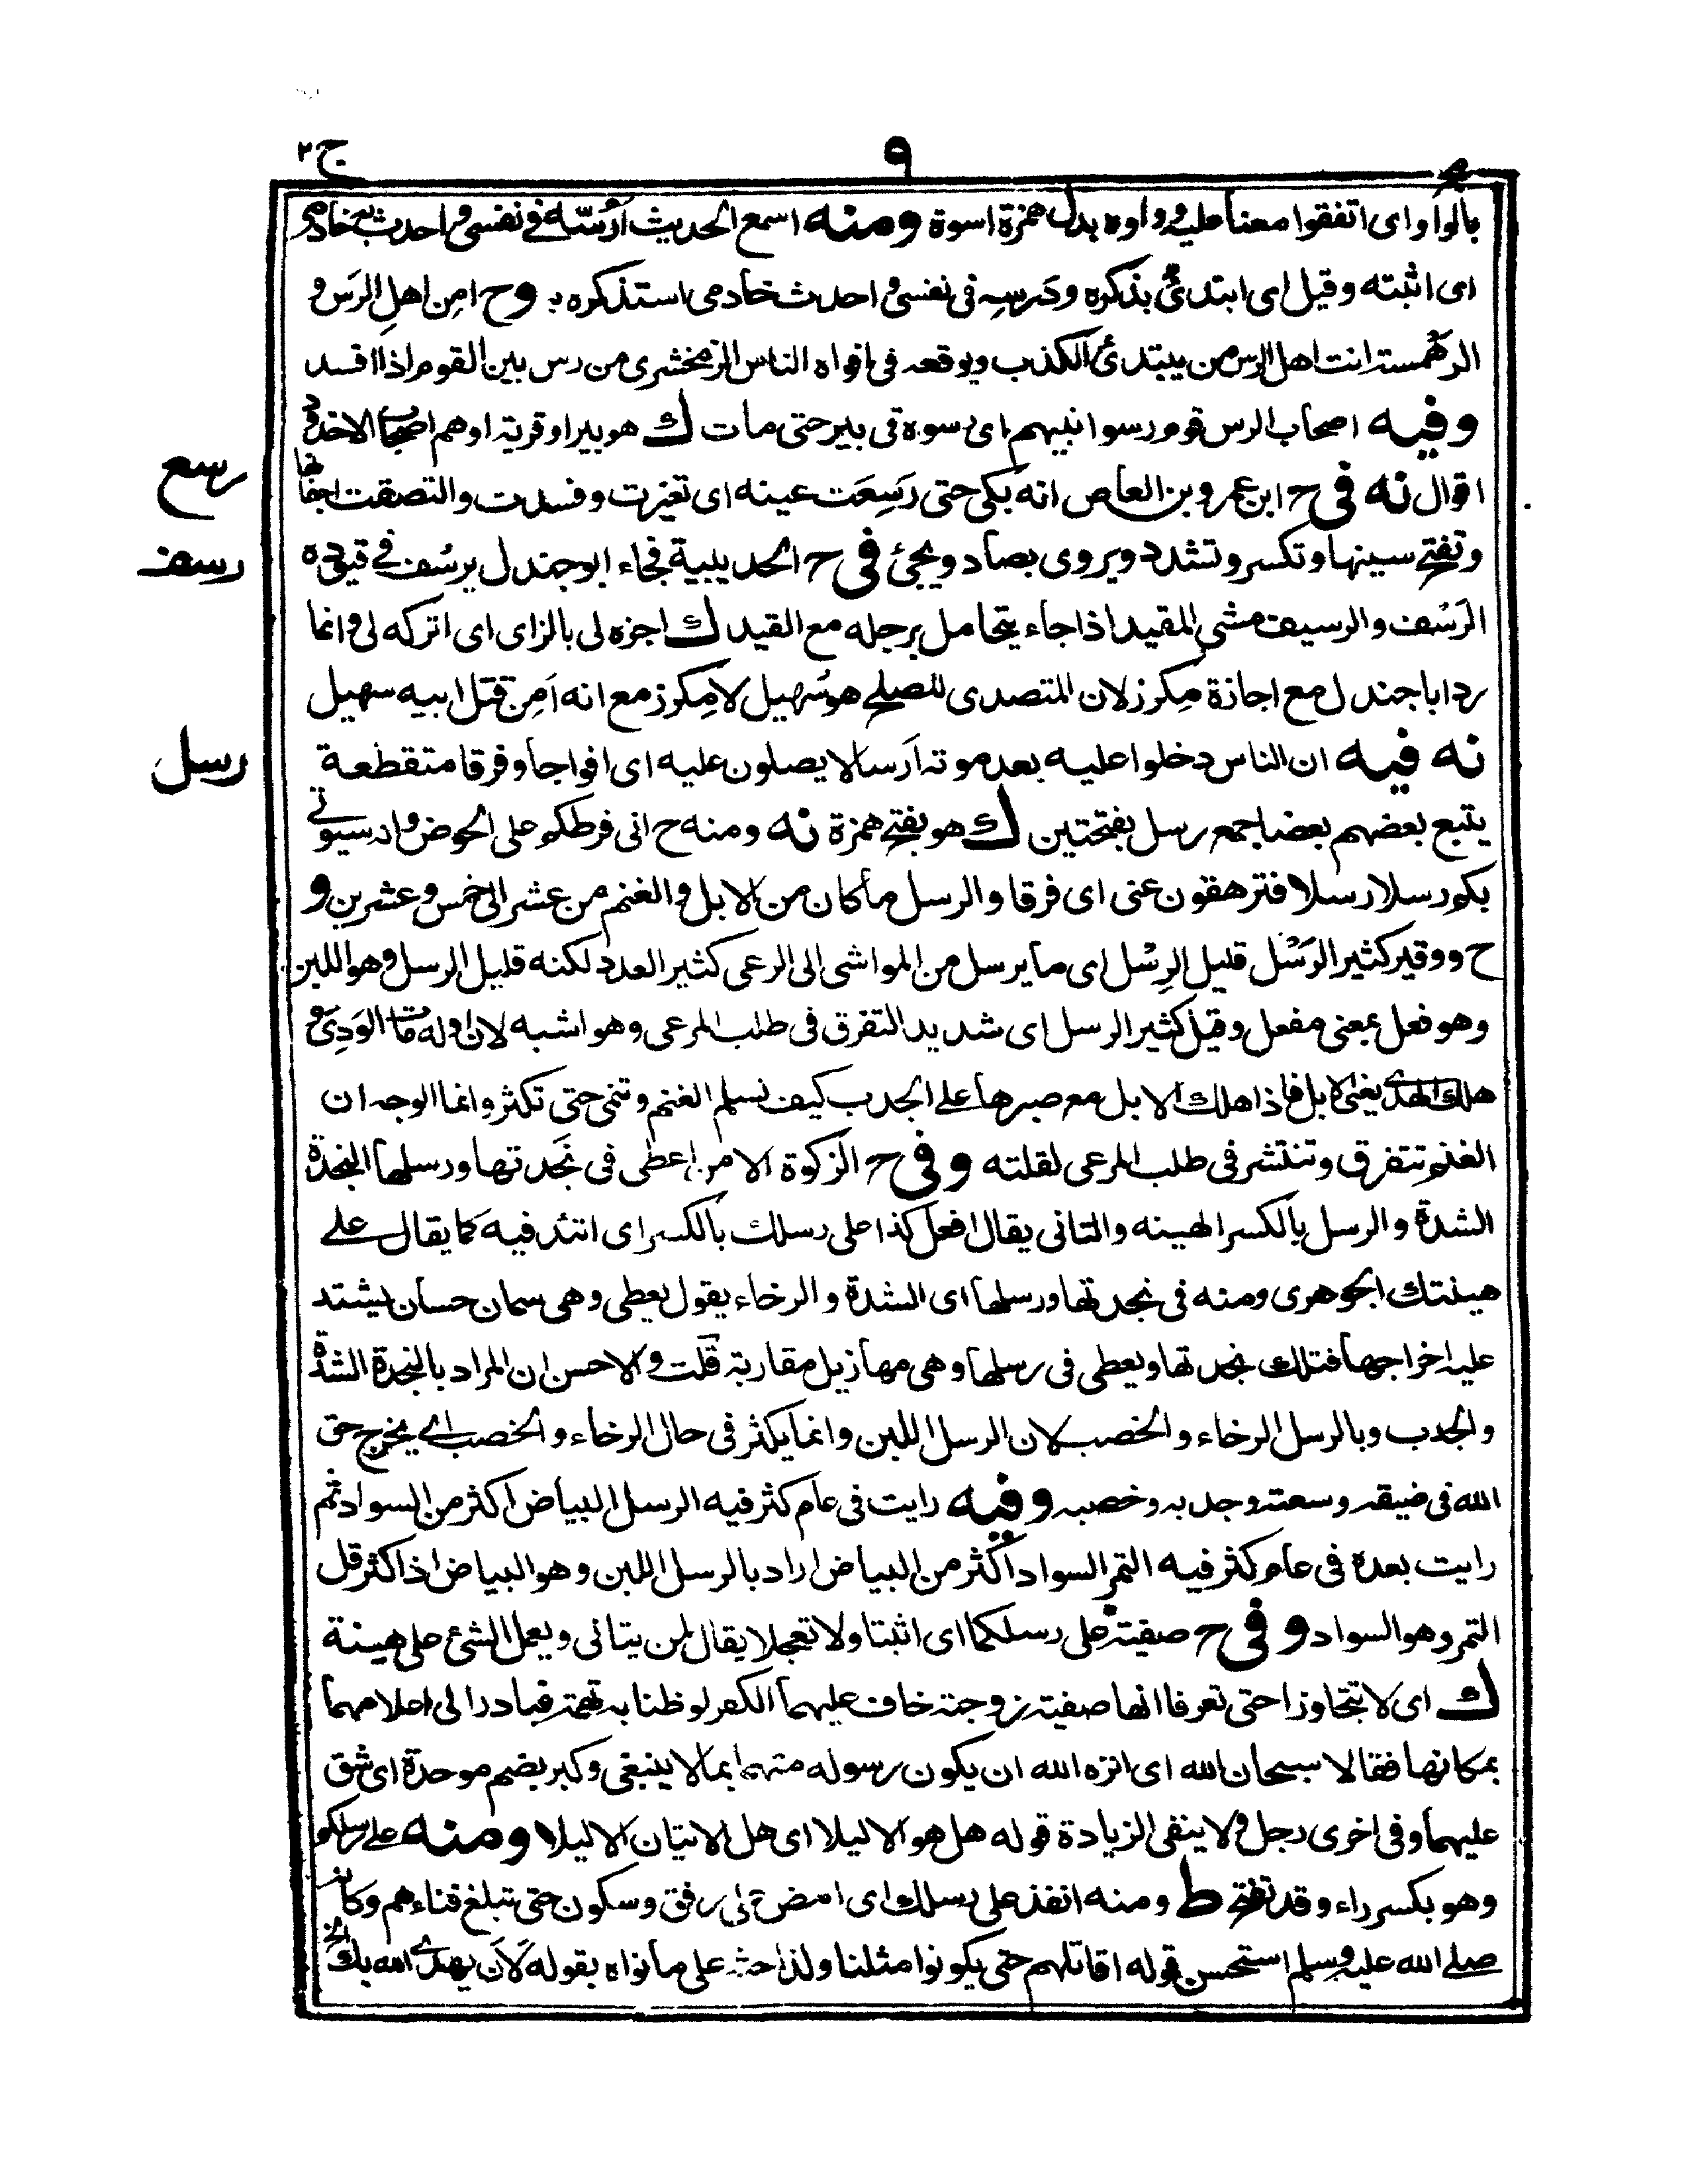 ج ٢
٩
بالواو اى اتفقوا معنا عليه و واوه بدل همزة اسوة ومنه اسمع الحديث أرُسّه فى نفسى و احدث به خادمى
اى اثبته وقيل اى ابتدئ بذكره ودَرسِه فى نفسى و احدث خادمى استذكره به وح امِن اهل الرَس و
الرهمسة انت اهل الرس من يبتدئ الكذب ويوقعه فى افواه الناس الزمخشرى من رس بين القوم اذا افسد
وفيه اصحاب الرس قوم رسوا نبيهم اى رسوه فى بير حتى مات ك هو بير او قرية او هم اصحاب الاخدود
اقوال نه فى ح ابن عمرو بن العاص انه بكى حتى رَسِعَت عينه اى تغيرت وفسدت والتصقت اجفانها
رسع
وتفتح سينها وتكسر وتشدد ويروى بصاد ويجئ فى ح الحديبية فجاء ابو جندل يرسُف فى قيوده
رسف
الرَسُف والرسيف مشى المقيد اذا جاء يتحامل برجله مع القيد ك اجزه لى بالزاى اى اتركه لى و انما
رد ابا جندل مع اجازة مِكرز لان المتصدى للصلح هو سُهيل لا مِكرز مع انه اَمِن قتل ابيه سهيل
نه فيه ان الناس دخلوا عليه بعد موته اَرسالا يصلون عليه اى افواجا وفرقا متقطعة
رسل
يتبع بعضهم بعضا جمع رسل بفتحتين ك هو بفتح همزة نه ومنه ح انى فرطكم على الحوض وانه سيوتى
بكم رسلا رسلا فترهقون عنى اى فرقا والرسل ما كان من الابل و الغنم من عشر الى خمس و عشرين و
ح ووقير كثير الرَسْل قليل الرِسْل اى ما يرسل من المواشى الى الرعى كثير العدد لكنه قليل الرسل وهو اللبن
وهو فعل بمعنى مفعل وقيل كثير الرسل اى شديد التفرق فى طلب المرعى وهو اشبه لان اوله مات الوَدِىّ و
هلك الهدى يعنى الابل فاذا هلك الابل مع صبرها على الجدب كيف تسلم الغنم وتنمى حتى تكثر وانما الوجه ان
الغنم تتفرق وتنتشر فى طلب المرعى لقلته وفى ح الزكوة الا من اعطى فى نَجدتها ورسلها النجدة
الشدة والرسل بالكسر الهينه والتانى يقال افعل كذا على رسلك بالكسر اى اتئد فيه كما يقال على
هينتك الجوهرى ومنه فى نجدتها ورسلها اى الشدة والرخاء يقول يعطى وهى سمان حسان يشتد
عليه اخراجها فتلك نجدتها ويعطى فى رسلها وهى مهازيل مقاربة قلت و الاحسن ان المراد بالنجدة الشدة
والجدب وبالرسل الرخاء والخصب لان الرسل اللبن وانما يكثر فى حال الرخاء والخصب اى يخرج حق
الله فى ضيقه وسعته وجدبه وخصبه وفيه رايت فى عام كثر فيه الرسل البياض اكثر من السواد ثم
رايت بعده فى عام كثر فيه التمر السواد اكثر من البياض اراد بالرسل اللبن وهو البياض اذا كثر قل
التمر وهو السواد وفى ح صفية على رسلكما اى اثبتا ولا تعجلا يقال لمن يتانى ويعمل الشئ على هينة
ك اى لا تتجاوزا حتى تعرفا انها صفية زوجته خاف عليهما الكفر لو ظنا به تهمة فبادر الى اعلامهما
بمكانها فقالا سبحان الله اى انزه الله ان يكون رسوله متهما بما لا ينبغى وكبر بضم موحدة اى شق
عليهما وفى اخرى رجل و لا ينفى الزيادة قوله هل هو الا ليلا اى هل الاتيان الا ليلا ومنه على رسلكم
وهو بكسر راء وقد تفتح ط ومنه انفذ على رسلك اى امض على رفق وسكون حتى تبلغ فناءهم وكانه
صلى الله عليه وسلم استحسن قوله اقاتلهم حتى يكونوا مثلنا ولذا حثه على ما نواه بقوله لَاَن يهدى الله بك الخ